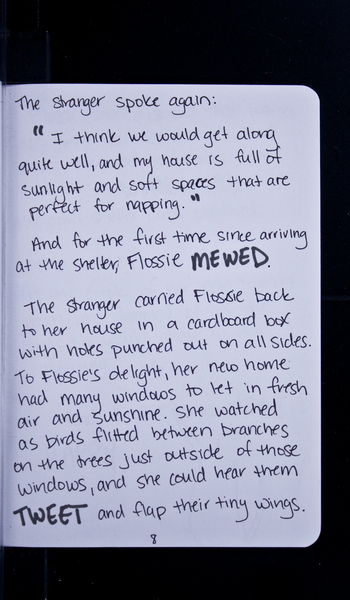 The stranger spoke again:
"I think we would get along
quite well, and my house is full of
sunlight and soft spaces that are
perfect for napping."
And for the first time since arriving
at the shelter, Flossie MEWED.
The stranger carried Flossie back
to her house in a cardboard box
with holes punched out on all sides.
To Flossie's delight, her new home
had many windows to let in fresh
air and sunshine. She watched
as birds flitted between branches
on the trees just outside of those
windows, and she could hear them
TWEET and flap their tiny wings.
8